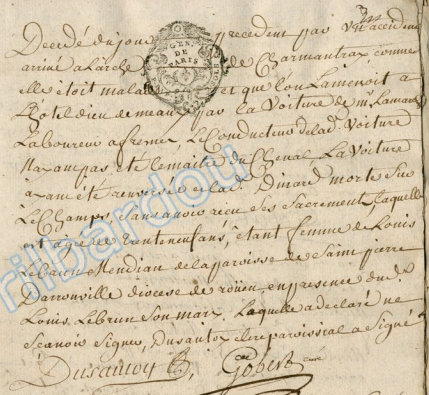 Decedé du jour precedent par un accident
arrivé a larche de Charmantray, comme
elle etoit malade et que l'on Lamenoit a
L'hôtel dieu de meaux, par la voiture de mr Lamand
Laboureur a fresne, Le Conducteur de lad. Voiture
Nayant pas eté le maitre du Cheval, La Voiture
ayant été renversée et lad. Dinard morte sur
Le Champ, sans avoir recu ses sacrements, laquelle
est agée de trente neuf ans, etant femme de Louis
Lebrun Mendiant de la paroisse de Saint pierre
Darrouville diocese de roüen, en presence dud.
Louis Lebrun son mary, Laquelle a declaré ne
Scavoir Signer, Dusautoy clerc paroissial a Signé
Dusautoy Gobert
GEN.
DE
PARIS
ribardou